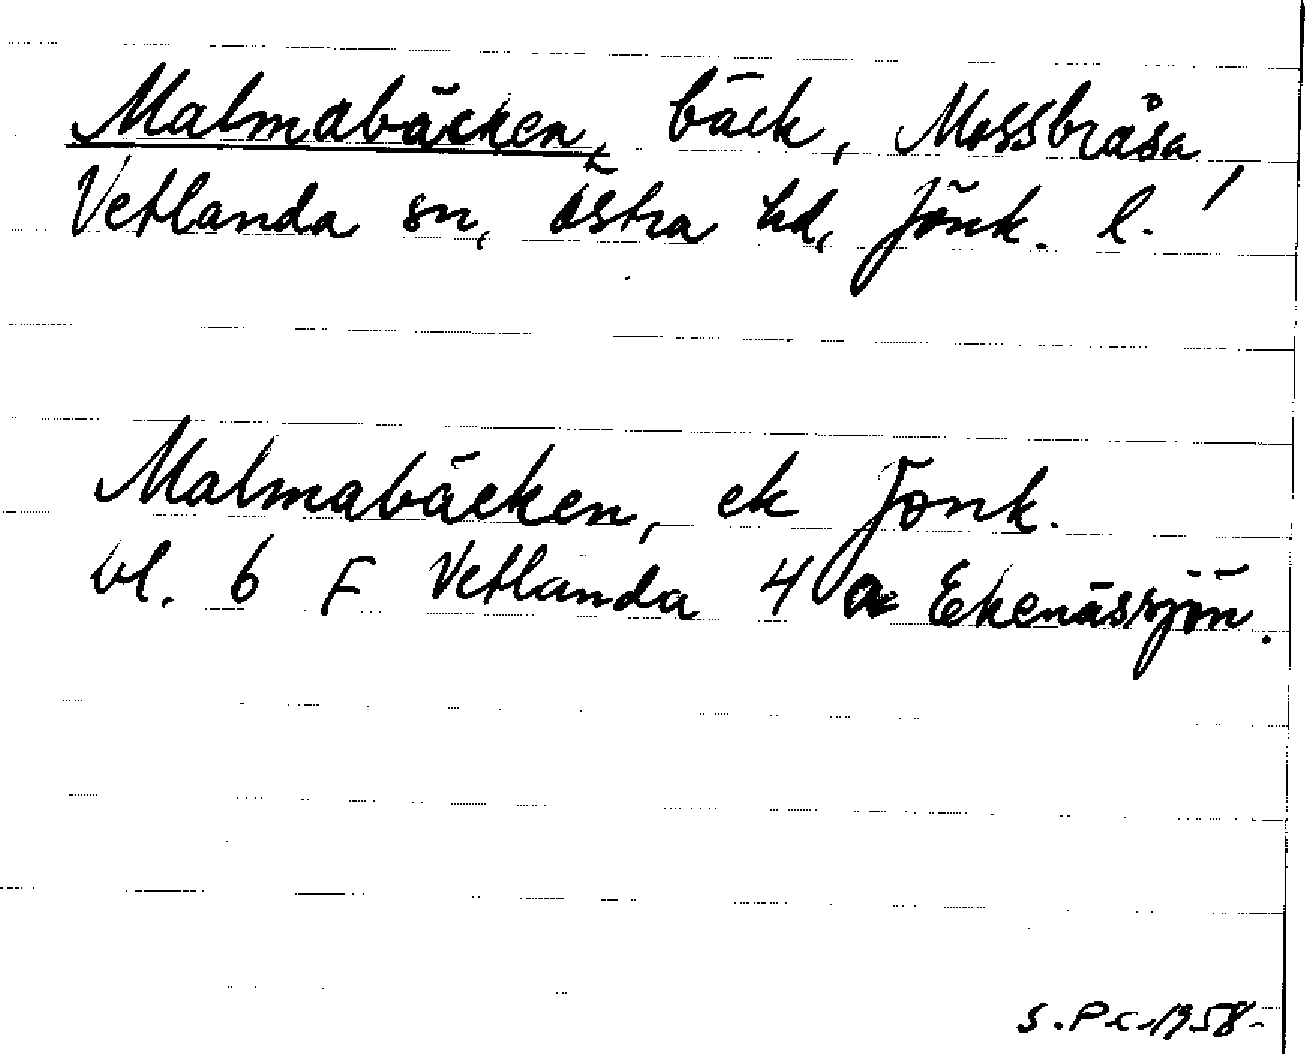 Malmabäcken, bäck, Mossbråsa,
Vetlanda sn, Östra hd, Jönk. l.
Malmabäcken, ek Jönk.
bl. 6 F Vetlanda 4 a Ekenässjön.
S.P-c-1958-